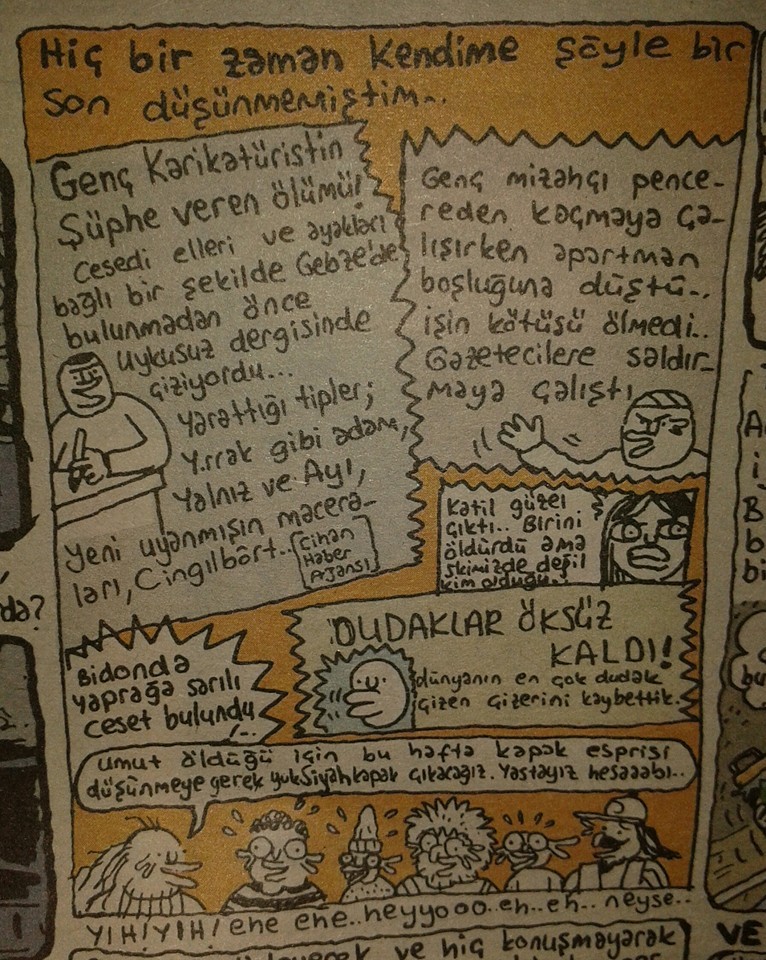 Hiç bir zaman kendime şöyle bir
son düşünmemiştim..
Genç Karikatüristin
Şüphe veren ölümü!
Cesedi elleri ve ayakları
bağlı bir şekilde Gebze'de
bulunmadan önce
Uykusuz dergisinde
çiziyordu...
Yarattığı tipler;
Y.rrak gibi adam,
Yalnız ve Ayı,
Yeni uyanmışın macera-
ları, Cingılbört..
Cihan
Haber
Ajansı
Genç mizahçı pence-
reden kaçmaya ça-
lışırken apartman
boşluğuna düştü..
işin kötüsü ölmedi..
Gazetecilere saldır-
maya çalıştı
Katil güzel
çıktı.. Birini
öldürdü ama
skimizde değil
kim olduğu.
Bidonda
yaprağa sarılı
ceset bulundu
!..
DUDAKLAR ÖKSÜZ
KALDI!
dünyanın en çok dudak
çizen çizerini kaybettik.
Umut öldüğü için bu hafta kapak esprisi
düşünmeye gerek yuk Siyah kapak çıkacağız. Yastayız hesaaabı..
YIH! YIH! ehe ehe..heyyooo..eh..eh.. neyse..
ve hiç konuşmayarak
da?
A
i
B
b
bi
bu
VE